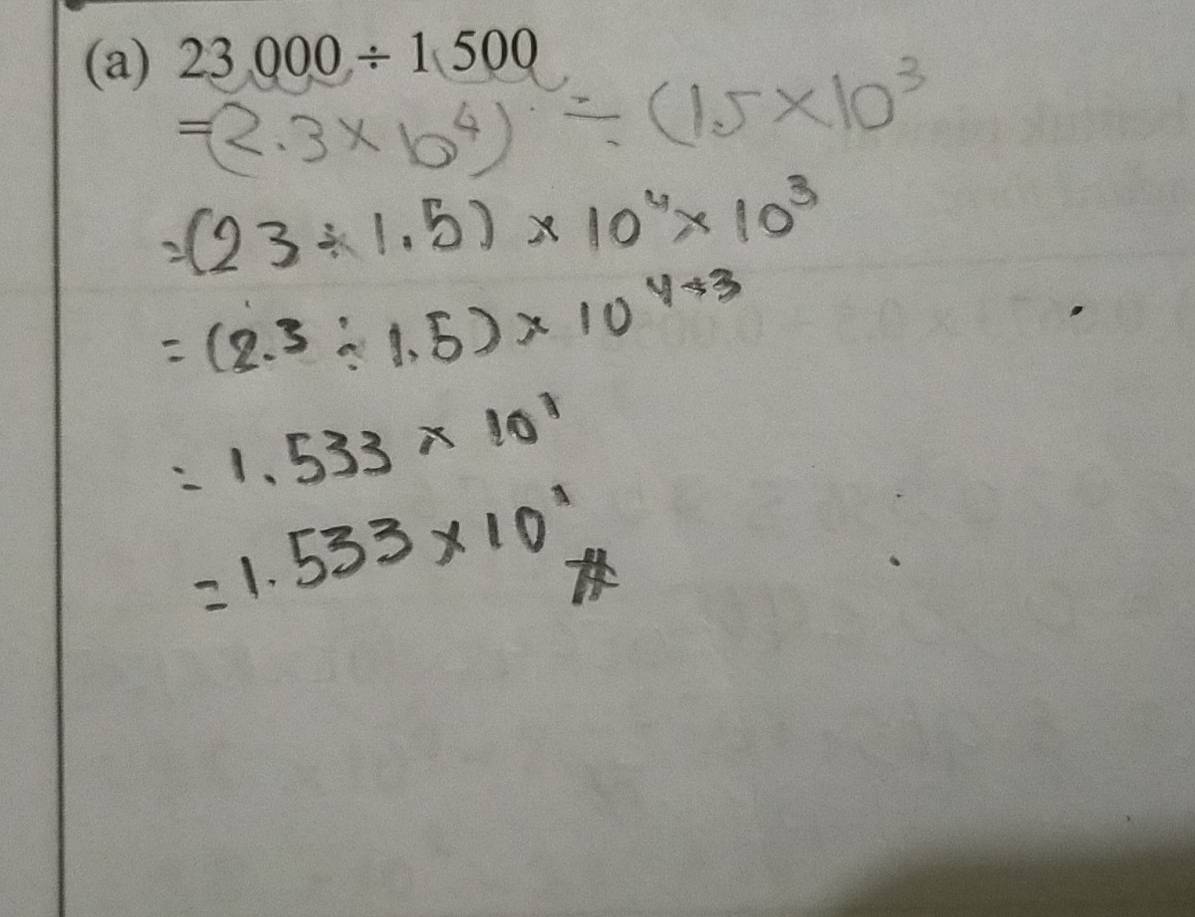 (a) 23 000 ÷ 1 500
=(2.3 × 10⁴) ÷ (1.5 × 10³
=(23 ÷ 1.5) × 10⁴ × 10³
= (2.3 ÷ 1.5) × 10⁴÷³
= 1.533 × 10¹
= 1.533 × 10¹ #